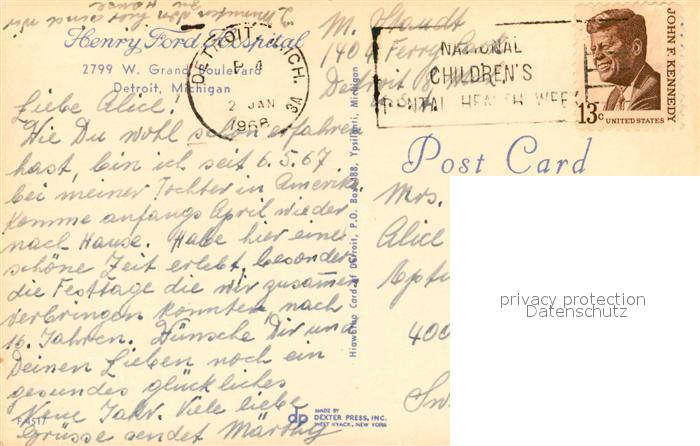 Haus.
Henry Ford Hospital
2799 W. Grand Boulevard
Detroit, Michigan
DETROIT, MICH.
P 4
2 JAN
1968
34
NATIONAL
CHILDREN'S
DENTAL HEALTH WEEK
JOHN F. KENNEDY
13c UNITED STATES
M. Staudt
140 Ferry
Detroit
Post Card
Liebe Alice!
Wie Du wohl schon erfahren
hast, bin ich seit 6.5.67
bei meiner Tochter in Amerika.
Komme anfangs April wieder
nach Hause. Habe hier eine
schöne Zeit erlebt, besonders
die Festtage die wir zusammen
verbringen konnten nach
16 Jahren. Wünsche Dir und
Deinen Lieben noch ein
gesundes glückliches
Neue Jahr. Viele liebe
Grüsse sendet
Mrs.
Alice
400
Hiawatha Card of Detroit, P.O. Box 388, Ypsilanti, Michigan
dp MADE BY
DEXTER PRESS, INC.
WEST NYACK, NEW YORK
privacy protection
Datenschutz